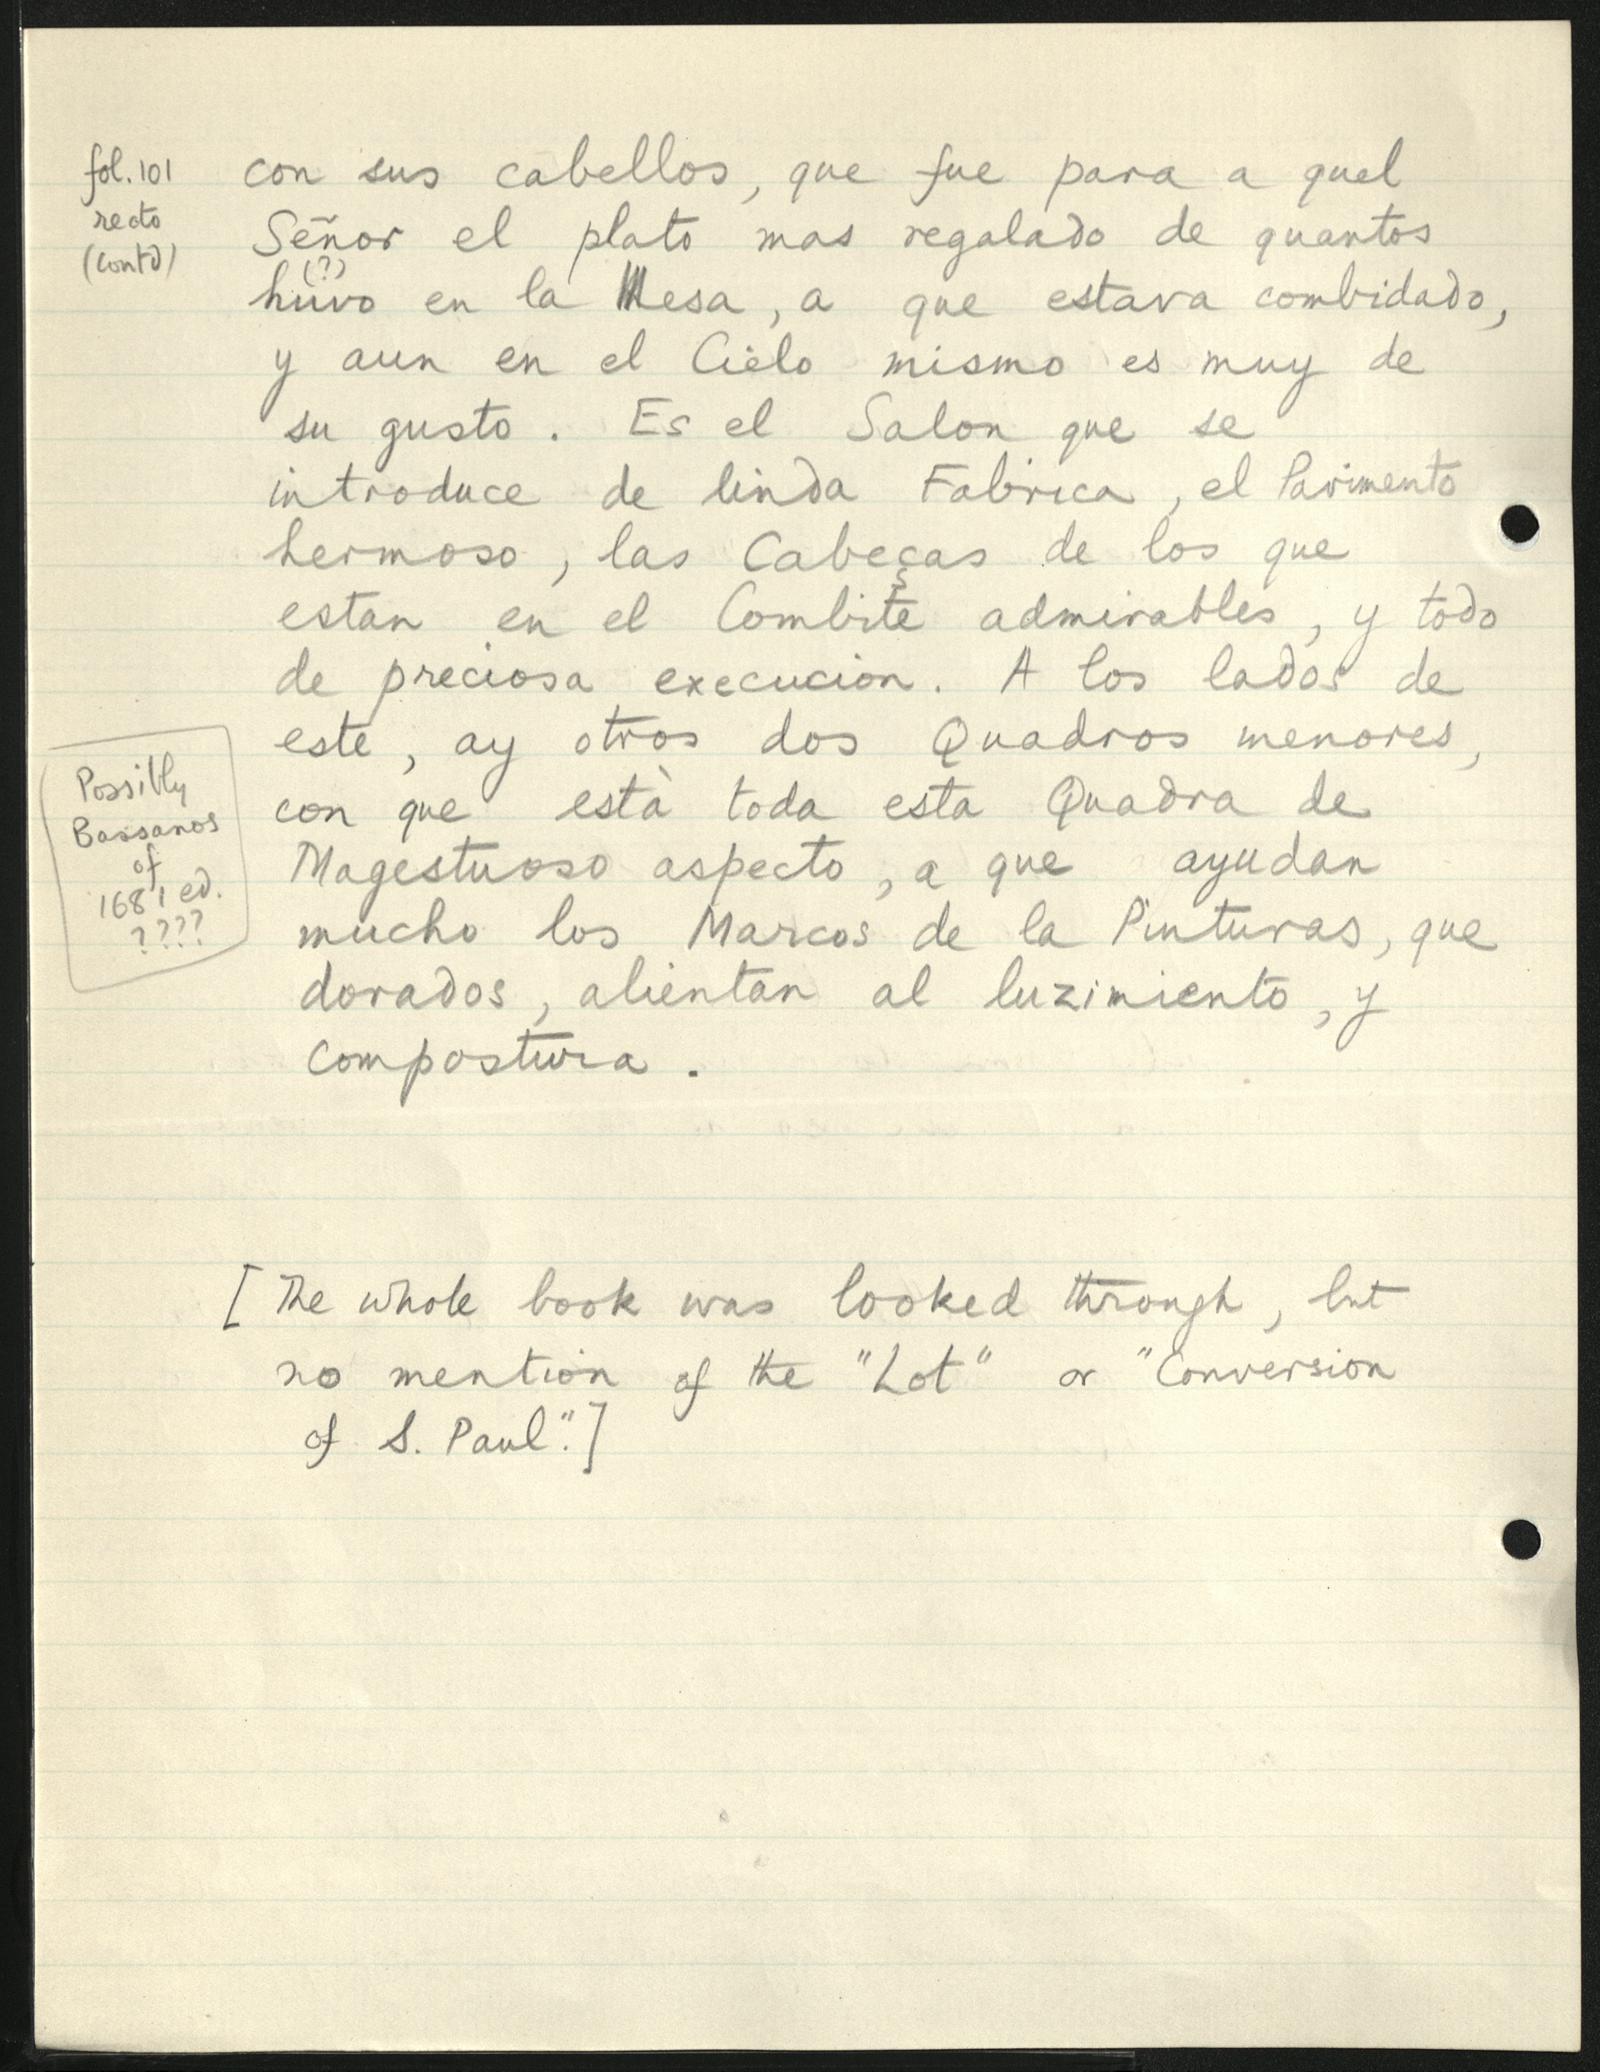 fol. 101
recto
(contd)
con sus cabellos, que fue para a quel
Señor el plato mas regalado de quantos
(?)
huvo en la Mesa, a que estava combidado,
y aun en el Cielo mismo es muy de
su gusto. Es el Salon que se
introduce de linda Fabrica, el Pavimento
hermoso, las Cabeças de los que
estan en el Combite admirables, y todo
de preciosa execucion. A los lados de
este, ay otros dos Quadros menores,
con que està toda esta Quadra de
Magestuoso aspecto, a que ayudan
mucho los Marcos de la Pinturas, que
dorados, alientan al luzimiento, y
compostura.
Possibly
Bassanos
of
1681 ed.
????
[The whole book was looked through, but
no mention of the "Lot" or "Conversion
of S. Paul".]